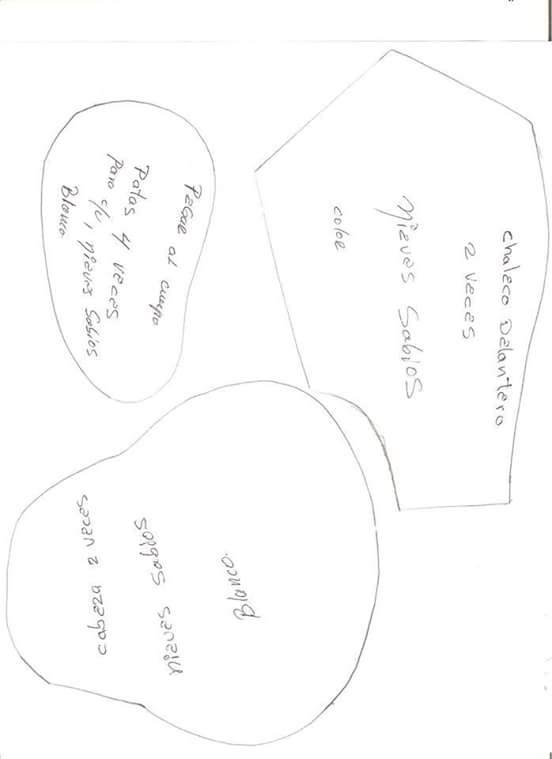 chaleco Delantero
2 veces
nieves Sabios
color
Pegar al cuerpo
Patas 4 veces
Para c/u, nieves Sabios
Blanco
Blanco.
nieves Sabios
cabeza 2 veces